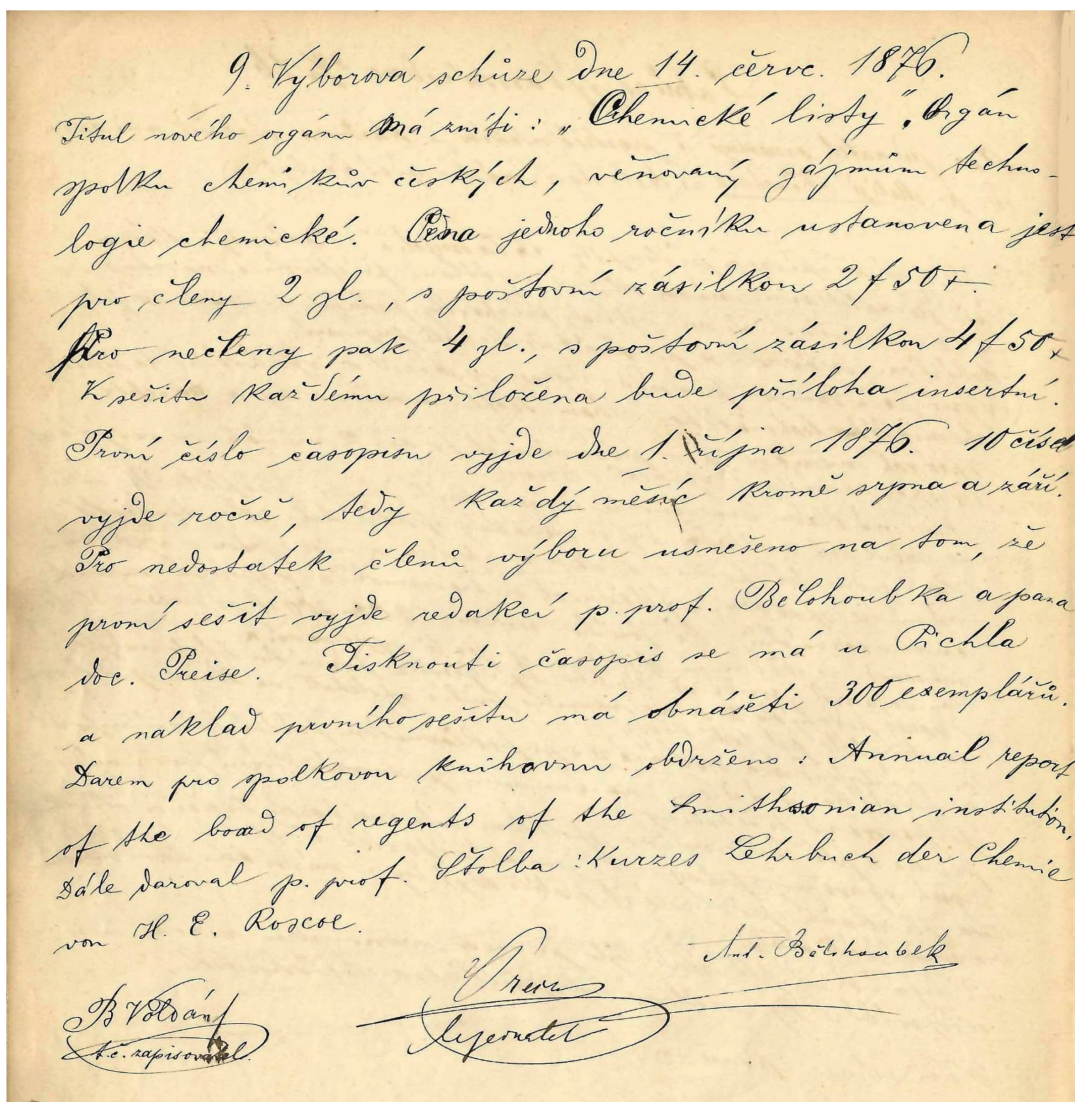 9. Výborová schůze dne 14. červc. 1876.
Titul nového orgánu má zníti: „Chemické listy“, Orgán
spolku chemikův českých, věnovaný zájmům techno-
logie chemické. Cena jednoho ročníku ustanovena jest
pro členy 2 zl., s poštovní zásilkou 2 f 50 x.
Pro nečleny pak 4 zl., s poštovní zásilkou 4 f 50 x
K sešitu každému přiložena bude příloha insertní.
První číslo časopisu vyjde dne 1. října 1876. 10 čísel
vyjde ročně, tedy každý měsíc kromě srpna a září.
Pro nedostatek členů výboru usnešeno na tom, že
první sešit vyjde redakcí p. prof. Bělohoubka a pana
doc. Preise. Tisknouti časopis se má u Pichla
a náklad prvního sešitu má obnášeti 300 exemplářů.
Darem pro spolkovou knihovnu obdrženo: Annual report
of the board of regents of the Smithsonian institution.
Dále daroval p. prof. Štolba: Kurzes Lehrbuch der Chemie
von H. E. Roscoe.
Ant. Bělohoubek
Preis
B Voldán
t. č. zapisovatel.
jednatel